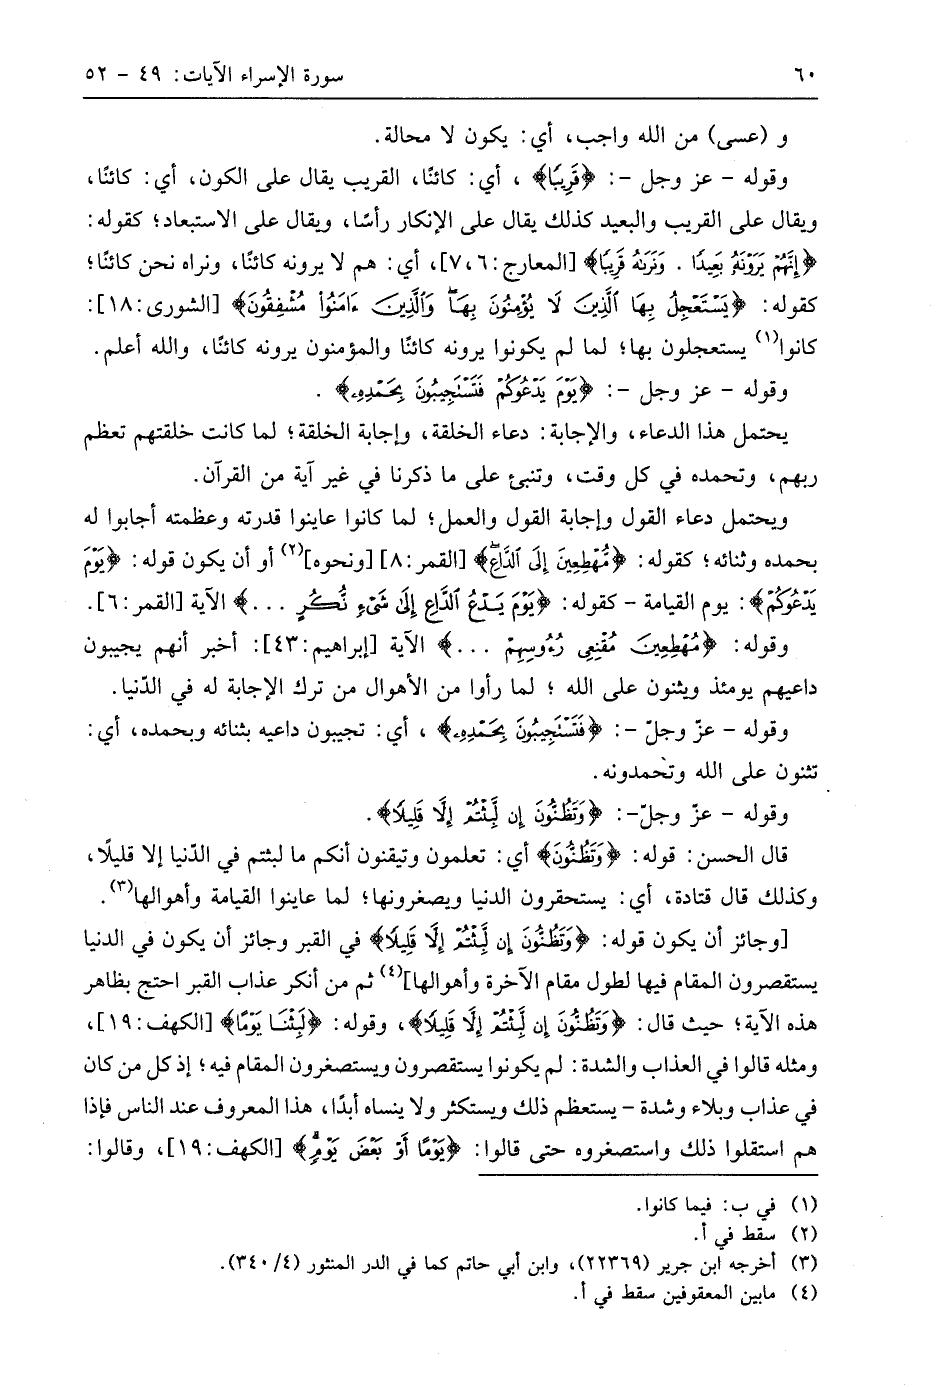 ٦٠
سورة الإسراء الآيات: ٤٩ - ٥٢
و (عسى) من الله واجب، أي: يكون لا محالة.
وقوله - عز وجل -: ﴿قَرِيبًا﴾ ، أي: كائنًا، القريب يقال على الكون، أي: كائنًا،
ويقال على القريب والبعيد كذلك يقال على الإنكار رأسًا، ويقال على الاستبعاد؛ كقوله:
﴿إِنَّهُمْ يَرَوْنَهُ بَعِيدًا . وَنَرَىٰهُ قَرِيبًا﴾ [المعارج:٧،٦]، أي: هم لا يرونه كائنًا، ونراه نحن كائنًا؛
كقوله: ﴿يَسْتَعْجِلُ بِهَا ٱلَّذِينَ لَا يُؤْمِنُونَ بِهَاۖ وَٱلَّذِينَ ءَامَنُواْ مُشْفِقُونَ﴾ [الشورى:١٨]:
كانوا(١) يستعجلون بها؛ لما لم يكونوا يرونه كائنًا والمؤمنون يرونه كائنًا، والله أعلم.
وقوله - عز وجل -: ﴿يَوْمَ يَدْعُوكُمْ فَتَسْتَجِيبُونَ بِحَمْدِهِۦ﴾ .
يحتمل هذا الدعاء، والإجابة: دعاء الخلقة، وإجابة الخلقة؛ لما كانت خلقتهم تعظم
ربهم، وتحمده في كل وقت، وتنبئ على ما ذكرنا في غير آية من القرآن.
ويحتمل دعاء القول وإجابة القول والعمل؛ لما كانوا عاينوا قدرته وعظمته أجابوا له
بحمده وثنائه؛ كقوله: ﴿مُّهْطِعِينَ إِلَى ٱلدَّاعِۖ﴾ [القمر:٨] [ونحوه](٢) أو أن يكون قوله: ﴿يَوْمَ
يَدْعُوكُمْ﴾: يوم القيامة - كقوله: ﴿يَوْمَ يَدْعُ ٱلدَّاعِ إِلَىٰ شَىْءٍ نُّكُرٍ ...﴾ الآية [القمر:٦].
وقوله: ﴿مُهْطِعِينَ مُقْنِعِى رُءُوسِهِمْ ...﴾ الآية [إبراهيم:٤٣]: أخبر أنهم يجيبون
داعيهم يومئذ ويثنون على الله ؛ لما رأوا من الأهوال من ترك الإجابة له في الدّنيا.
وقوله - عزّ وجلّ -: ﴿فَتَسْتَجِيبُونَ بِحَمْدِهِۦ﴾ ، أي: تجيبون داعيه بثنائه وبحمده، أي:
تثنون على الله وتحمدونه.
وقوله - عزّ وجلّ-: ﴿وَتَظُنُّونَ إِن لَّبِثْتُمْ إِلَّا قَلِيلًا﴾.
قال الحسن: قوله: ﴿وَتَظُنُّونَ﴾ أي: تعلمون وتيقنون أنكم ما لبثتم في الدّنيا إلا قليلًا،
وكذلك قال قتادة، أي: يستحقرون الدنيا ويصغرونها؛ لما عاينوا القيامة وأهوالها(٣).
[وجائز أن يكون قوله: ﴿وَتَظُنُّونَ إِن لَّبِثْتُمْ إِلَّا قَلِيلًا﴾ في القبر وجائز أن يكون في الدنيا
يستقصرون المقام فيها لطول مقام الآخرة وأهوالها](٤) ثم من أنكر عذاب القبر احتج بظاهر
هذه الآية؛ حيث قال: ﴿وَتَظُنُّونَ إِن لَّبِثْتُمْ إِلَّا قَلِيلًا﴾، وقوله: ﴿لَبِثْنَا يَوْمًا﴾ [الكهف:١٩]،
ومثله قالوا في العذاب والشدة: لم يكونوا يستقصرون ويستصغرون المقام فيه؛ إذ كل من كان
في عذاب وبلاء وشدة - يستعظم ذلك ويستكثر ولا ينساه أبدًا، هذا المعروف عند الناس فإذا
هم استقلوا ذلك واستصغروه حتى قالوا: ﴿يَوْمًا أَوْ بَعْضَ يَوْمٍۚ﴾ [الكهف:١٩]، وقالوا:
(١) في ب: فيما كانوا.
(٢) سقط في أ.
(٣) أخرجه ابن جرير (٢٢٣٦٩)، وابن أبي حاتم كما في الدر المنثور (٤/ ٣٤٠).
(٤) مابين المعقوفين سقط في أ.